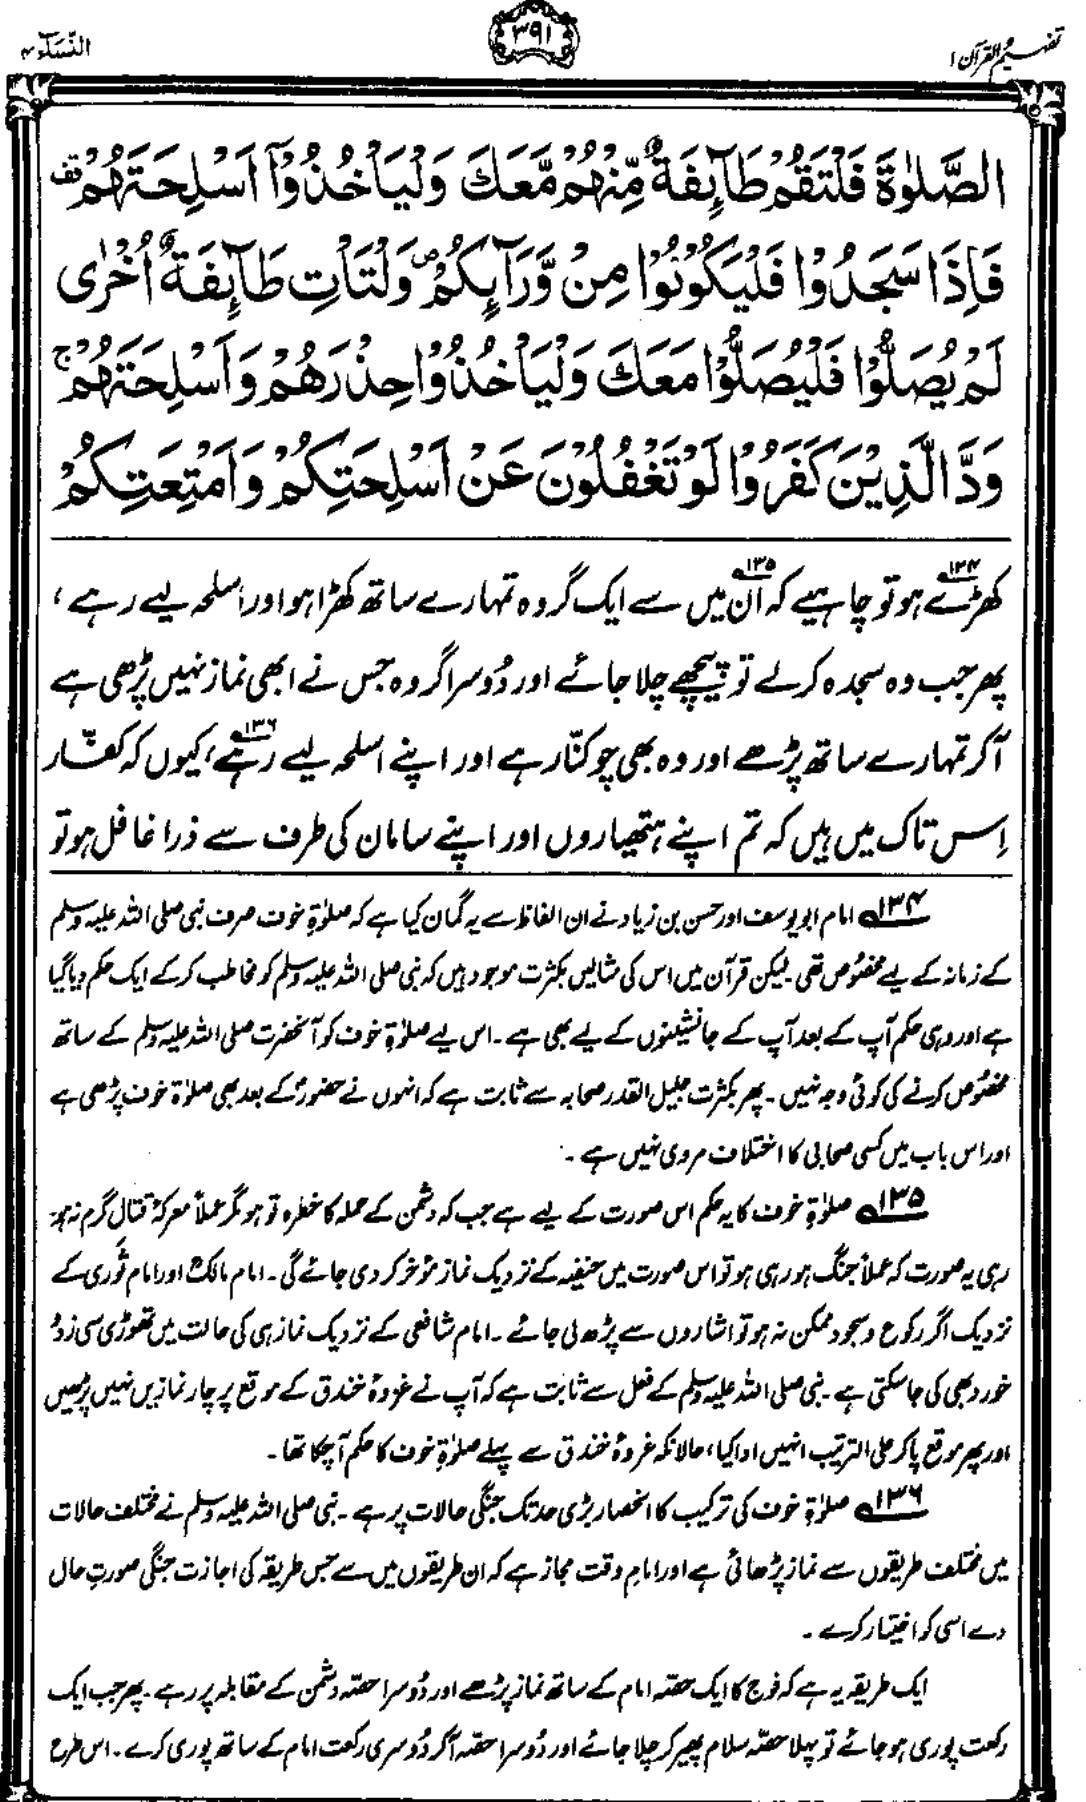 تفہیم القرآن ۱
۳۹۱
النّسآء ۴
الصَّلٰوةَ فَلْتَقُمْ طَآئِفَةٌ مِّنْهُمْ مَّعَكَ وَلْيَاْخُذُوْٓا اَسْلِحَتَهُمْ قف
فَاِذَا سَجَدُوْا فَلْيَكُوْنُوْا مِنْ وَّرَآئِكُمْ ص وَلْتَاْتِ طَآئِفَةٌ اُخْرٰى
لَمْ يُصَلُّوْا فَلْيُصَلُّوْا مَعَكَ وَلْيَاْخُذُوْا حِذْرَهُمْ وَاَسْلِحَتَهُمْ ج
وَدَّ الَّذِيْنَ كَفَرُوْا لَوْ تَغْفُلُوْنَ عَنْ اَسْلِحَتِكُمْ وَاَمْتِعَتِكُمْ
کھڑے ۱۳۴ ہو تو چاہیے کہ ان ۱۳۵ میں سے ایک گروہ تمہارے ساتھ کھڑا ہو اور اسلحہ لیے رہے،
پھر جب وہ سجدہ کر لے تو پیچھے چلا جائے اور دُوسرا گروہ جس نے ابھی نماز نہیں پڑھی ہے
آکر تمہارے ساتھ پڑھے اور وہ بھی چوکنّا رہے اور اپنے اسلحہ لیے رہے ۱۳۶، کیوں کہ کفّار
اِس تاک میں ہیں کہ تم اپنے ہتھیاروں اور اپنے سامان کی طرف سے ذرا غافل ہو تو
۱۳۴ امام ابو یوسف اور حسن بن زیاد نے ان الفاظ سے یہ گمان کیا ہے کہ صلوٰۃِ خوف صرف نبی صلی اللہ علیہ وسلم
کے زمانہ کے لیے مخصُوص تھی۔ لیکن قرآن میں اس کی مثالیں بکثرت موجود ہیں کہ نبی صلی اللہ علیہ وسلم کو مخاطب کر کے ایک حکم دیا گیا
ہے اور وہی حکم آپ کے بعد آپ کے جانشینوں کے لیے بھی ہے۔ اس لیے صلوٰۃِ خوف کو آنحضرت صلی اللہ علیہ وسلم کے ساتھ
مخصُوص کرنے کی کوئی وجہ نہیں۔ پھر بکثرت جلیل القدر صحابہ سے ثابت ہے کہ انہوں نے حضورؐ کے بعد بھی صلوٰۃ خوف پڑھی ہے
اور اس باب میں کسی صحابی کا اختلاف مروی نہیں ہے۔
۱۳۵ صلوٰۃِ خوف کا یہ حکم اس صورت کے لیے ہے جب کہ دشمن کے حملہ کا خطرہ تو ہو مگر عملاً معرکۂ قتال گرم نہ ہو۔
رہی یہ صورت کہ عملاً جنگ ہو رہی ہو تو اس صورت میں حنفیہ کے نزدیک نماز مؤخر کر دی جائے گی۔ امام مالکؒ اور امام ثَوری کے
نزدیک اگر رکوع و سجود ممکن نہ ہو تو اشاروں سے پڑھ لی جائے۔ امام شافعی کے نزدیک نماز ہی کی حالت میں تھوڑی سی زد و
خورد بھی کی جا سکتی ہے۔ نبی صلی اللہ علیہ وسلم کے فعل سے ثابت ہے کہ آپ نے غزوۂ خندق کے موقع پر چار نمازیں نہیں پڑھیں
اور پھر موقع پا کر علی الترتیب انہیں ادا کیا، حالانکہ غزوۂ خندق سے پہلے صلوٰۃِ خوف کا حکم آ چکا تھا۔
۱۳۶ صلوٰۃِ خوف کی ترکیب کا انحصار بڑی حد تک جنگی حالات پر ہے۔ نبی صلی اللہ علیہ وسلم نے مختلف حالات
میں مختلف طریقوں سے نماز پڑھائی ہے اور امام وقت مجاز ہے کہ ان طریقوں میں سے جس طریقہ کی اجازت جنگی صورتِ حال
دے اسی کو اختیار کرے۔
ایک طریقہ یہ ہے کہ فوج کا ایک حصّہ امام کے ساتھ نماز پڑھے اور دُوسرا حصّہ دشمن کے مقابلہ پر رہے۔ پھر جب ایک
رکعت پوری ہو جائے تو پہلا حصّہ سلام پھیر کر چلا جائے اور دُوسرا حصّہ آکر دُوسری رکعت امام کے ساتھ پوری کرے۔ اس طرح